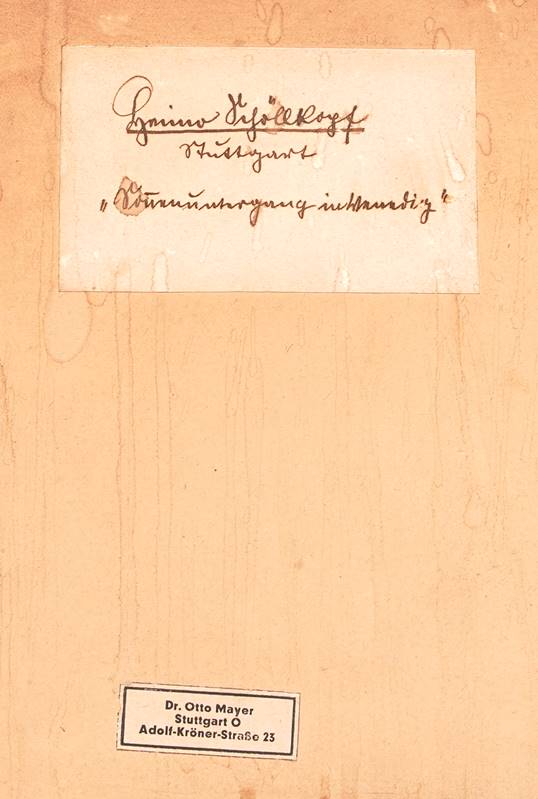 Heimo Schöllkopf
Stuttgart
„Son̄enuntergang in Venedig“
Dr. Otto Mayer
Stuttgart O
Adolf-Kröner-Straße 23